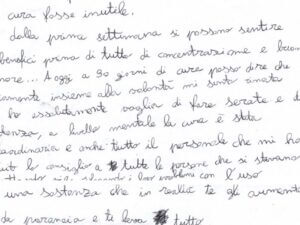 cura fosse inutile.
dalla prima settimana si possono sentire
benefici prima di tutto di concentrazione e buon
more... A oggi a 90 giorni di cura posso dire che
insieme alla volontà mi sento rinata
ho assolutamente voglia di fare serate e d
denza, a livello mentale la cura è stata
raordinaria e anche tutto il personale che mi ha
consiglio a tutte le persone che si stavano
i loro problemi con l'uso
una sostanza che in realtà te gli aumenta
da paranoia e ti leva tutto